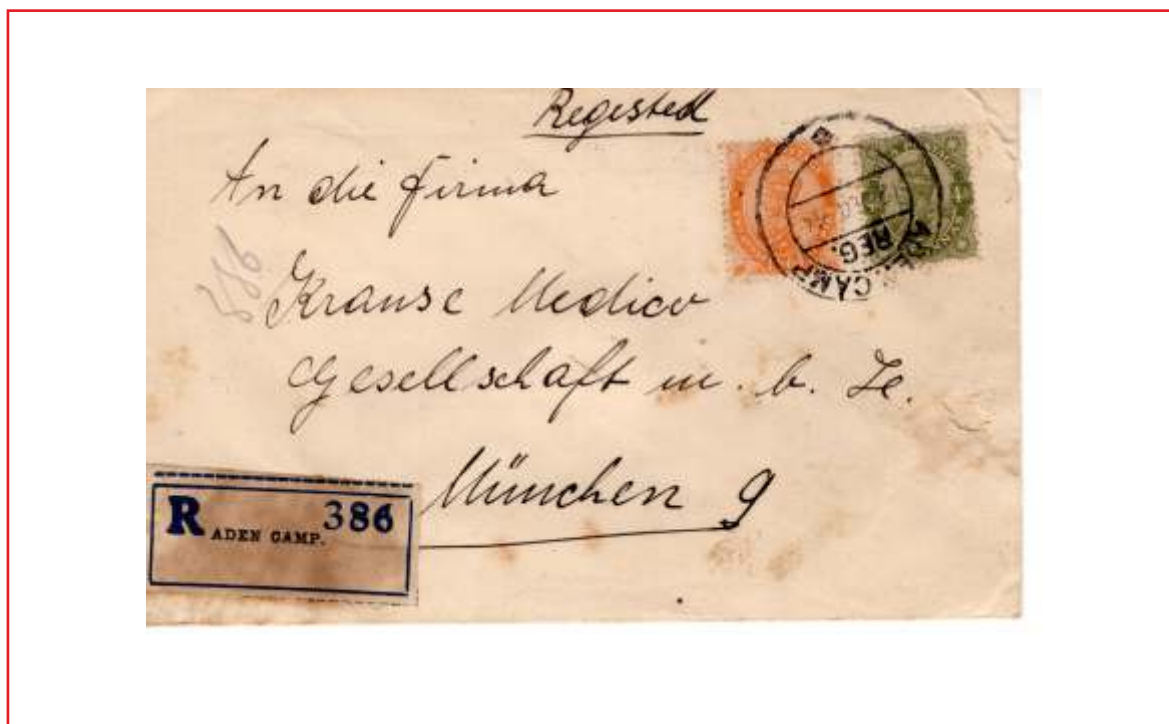 Regested
An die Firma
386
Krause Medico
Gesellschaft m. b. H.
München 9
R 386
ADEN CAMP.
ADEN CAMP
REG.